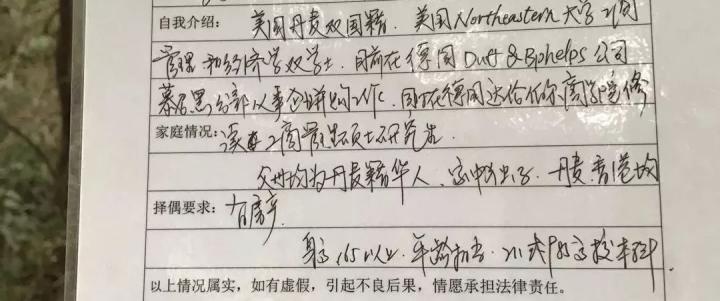 自我介绍: 美国丹麦双国籍. 美国Northeastern大学 工商
管理和经济学双学士. 目前在德国 Duff & Phelps 公司
慕尼黑分部从事企业并购工作. 同时在德国 商学院 修
家庭情况: 读 工商管理硕士研究生.
父母均为丹麦籍华人. 家中独子. 丹麦香港均
择偶要求: 有房产.
身高165以上. 年龄相当. 211或985高校本科
以上情况属实，如有虚假，引起不良后果，情愿承担法律责任。